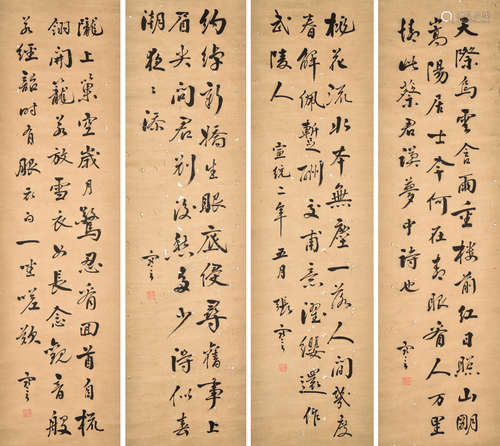 天際烏雲含雨重樓前紅日照山明
嵩陽居士今何在青眼看人万里
情此蔡君謨夢中詩也
謇
桃花流水本無塵一落人間幾度
春解佩暫酬交甫意濯纓還作
武陵人 宣統二年五月 張謇
約綽新嬌生眼底侵尋舊事上
眉尖問君別後愁多少得似春
潮夜〻添
謇
隴上巢空歲月驚忍看回首自梳
翎開籠若放雪衣女長念觀音般
若經韶時有服衣白一坐嗟歎 謇